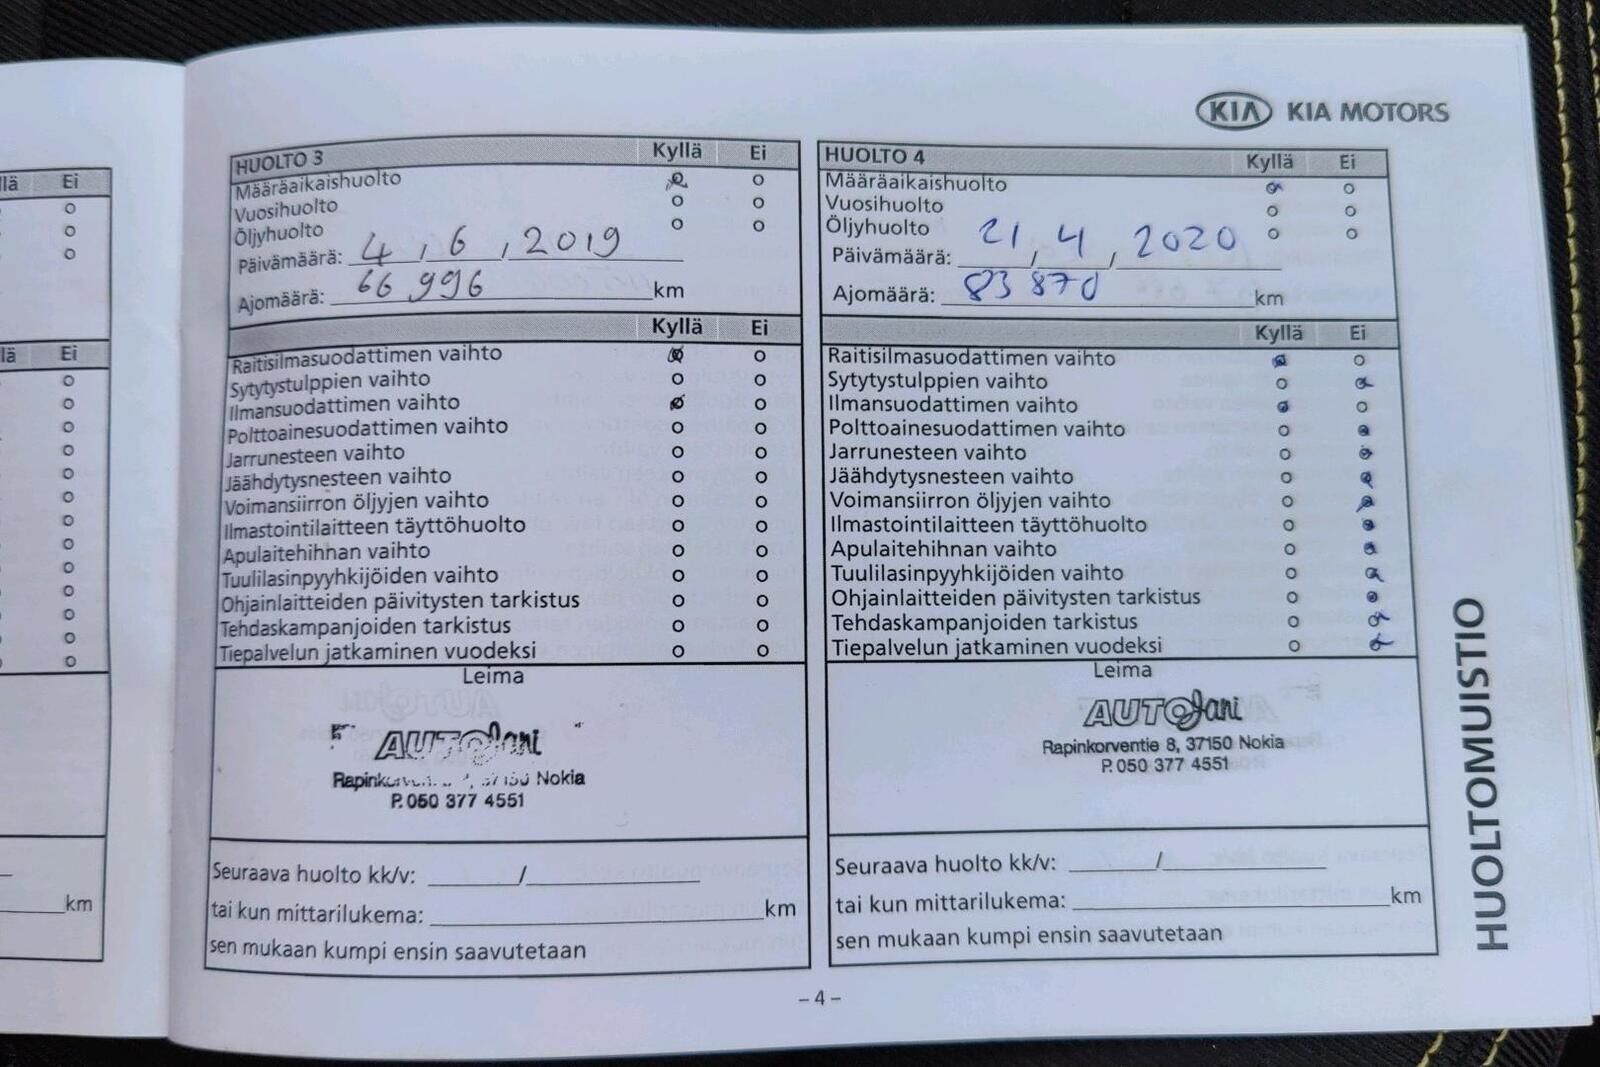 KIA KIA MOTORS
llä Ei
lä Ei
km
HUOLTO 3 Kyllä Ei
Määräaikaishuolto
Vuosihuolto
Öljyhuolto
Päivämäärä: 4, 6, 2019
Ajomäärä: 66 996 km
Kyllä Ei
Raitisilmasuodattimen vaihto
Sytytystulppien vaihto
Ilmansuodattimen vaihto
Polttoainesuodattimen vaihto
Jarrunesteen vaihto
Jäähdytysnesteen vaihto
Voimansiirron öljyjen vaihto
Ilmastointilaitteen täyttöhuolto
Apulaitehihnan vaihto
Tuulilasinpyyhkijöiden vaihto
Ohjainlaitteiden päivitysten tarkistus
Tehdaskampanjoiden tarkistus
Tiepalvelun jatkaminen vuodeksi
Leima
AUTOJani
37150 Nokia
P. 050 377 4551
Seuraava huolto kk/v: /
tai kun mittarilukema: km
sen mukaan kumpi ensin saavutetaan
HUOLTO 4 Kyllä Ei
Määräaikaishuolto
Vuosihuolto
Öljyhuolto
Päivämäärä: 21 / 4 , 2020
Ajomäärä: 83 870 km
Kyllä Ei
Raitisilmasuodattimen vaihto
Sytytystulppien vaihto
Ilmansuodattimen vaihto
Polttoainesuodattimen vaihto
Jarrunesteen vaihto
Jäähdytysnesteen vaihto
Voimansiirron öljyjen vaihto
Ilmastointilaitteen täyttöhuolto
Apulaitehihnan vaihto
Tuulilasinpyyhkijöiden vaihto
Ohjainlaitteiden päivitysten tarkistus
Tehdaskampanjoiden tarkistus
Tiepalvelun jatkaminen vuodeksi
Leima
AUTOJani
Rapinkorventie 8, 37150 Nokia
P. 050 377 4551
Seuraava huolto kk/v: /
tai kun mittarilukema: km
sen mukaan kumpi ensin saavutetaan
HUOLTOMUISTIO
– 4 –